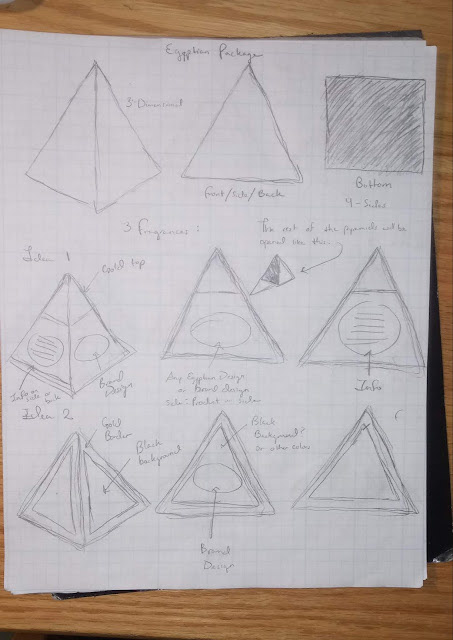 Egyptian Package
3-Dimensional
Front/Side/Back
Bottom
4-Sides
3 Fragrances:
The rest of the pyramids will be
opened like this.
Idea 1
Gold top
Info on
side or back
Brand
Design
Any Egyptian Design
or Brand design
Side: Product in
Info
Idea 2
Gold
Border
Black
background
Black
Background?
or other color
Brand
Design